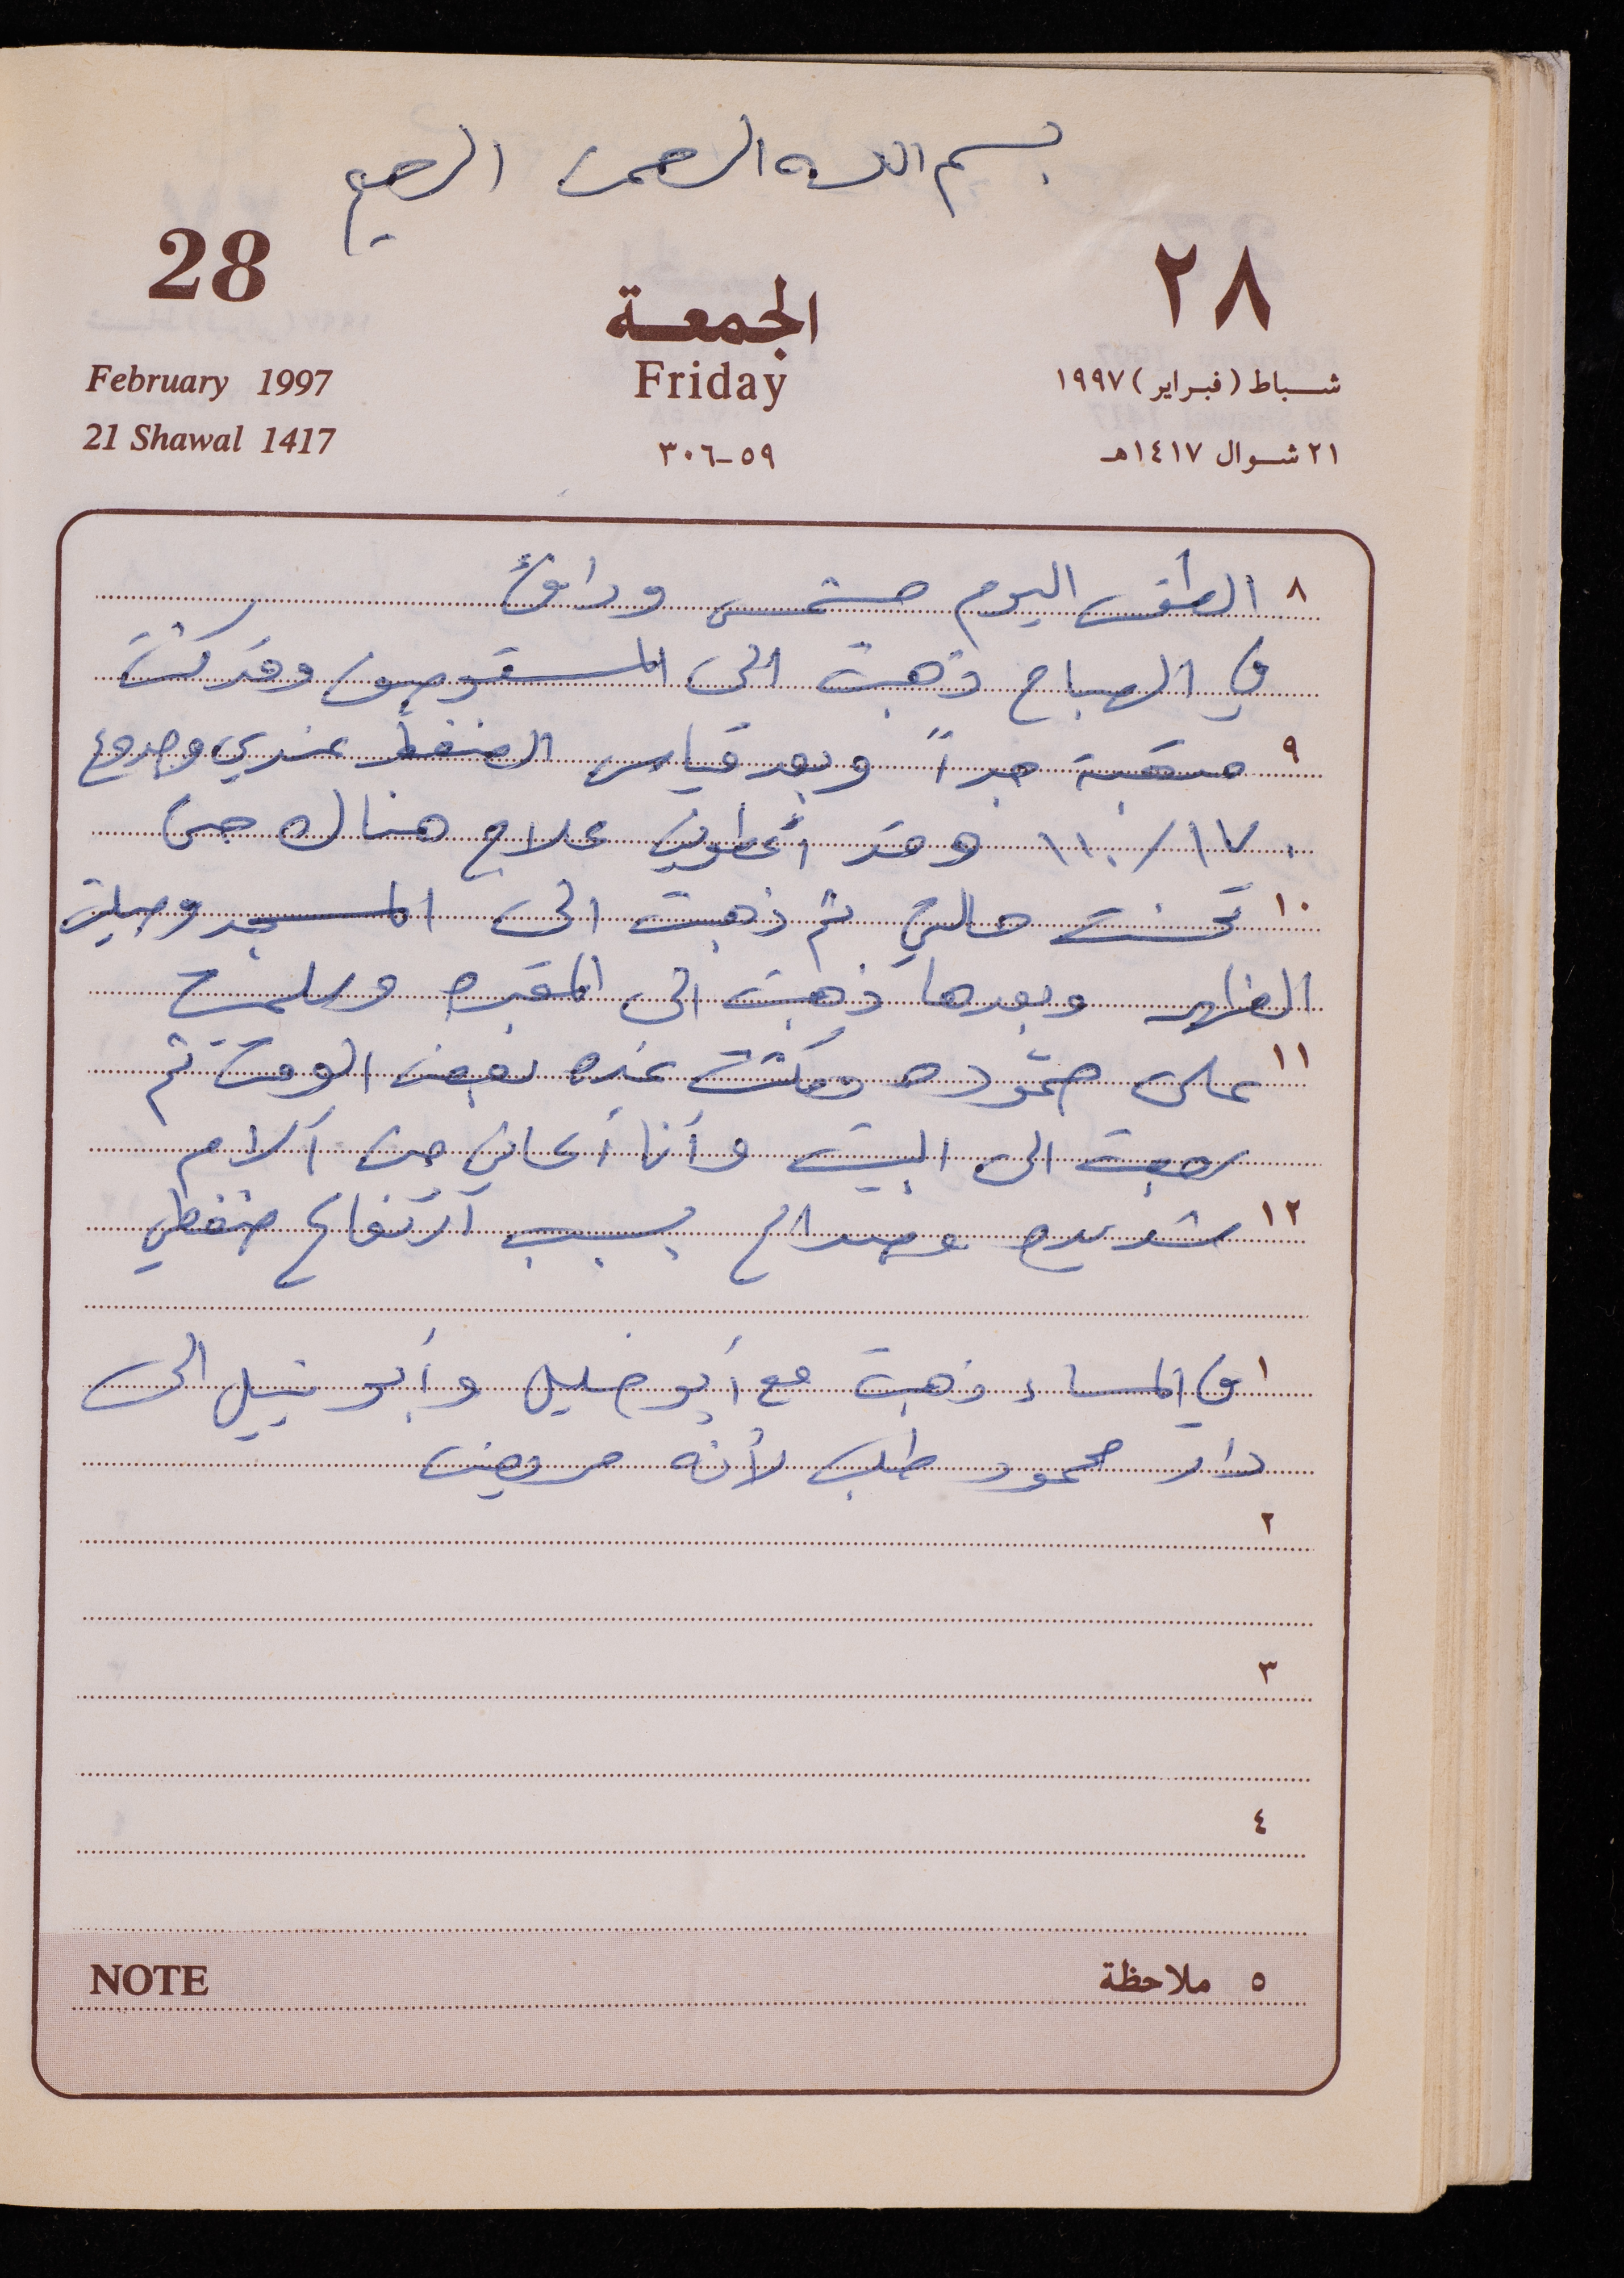 بسم الله الرحمن الرحيم
28
الجمعة
٢٨
February 1997
Friday
شباط (فبراير) ١٩٩٧
21 Shawal 1417
٥٩-٣٠٦
٢١ شوال ١٤١٧هـ
٨ الطقس اليوم مشمس ودافئ
في الصباح ذهبت الى المستوصف وقد كنت
٩ متعبة جداً وبعد قياس الضغط عندي وجدوه
١٧٠/١١٠ وقد أعطوني علاج هناك حتى
١٠ تحسنت حالتي ثم ذهبت الى المسجد وصليت
الظهر وبعدها ذهبت الى المقبره وسلمت
١١ على حموده ومكثت عنده بعض الوقت ثم
رجعت الى البيت وأنا أعاني من آلام
١٢ شديده وصداع بسبب آرتفاع ضغطي
١ في المساء ذهبت مع أبو خليل وأبو نبيل الى
دار محمود طلب لأنه مريض
٢
٣
٤
NOTE
٥ ملاحظة